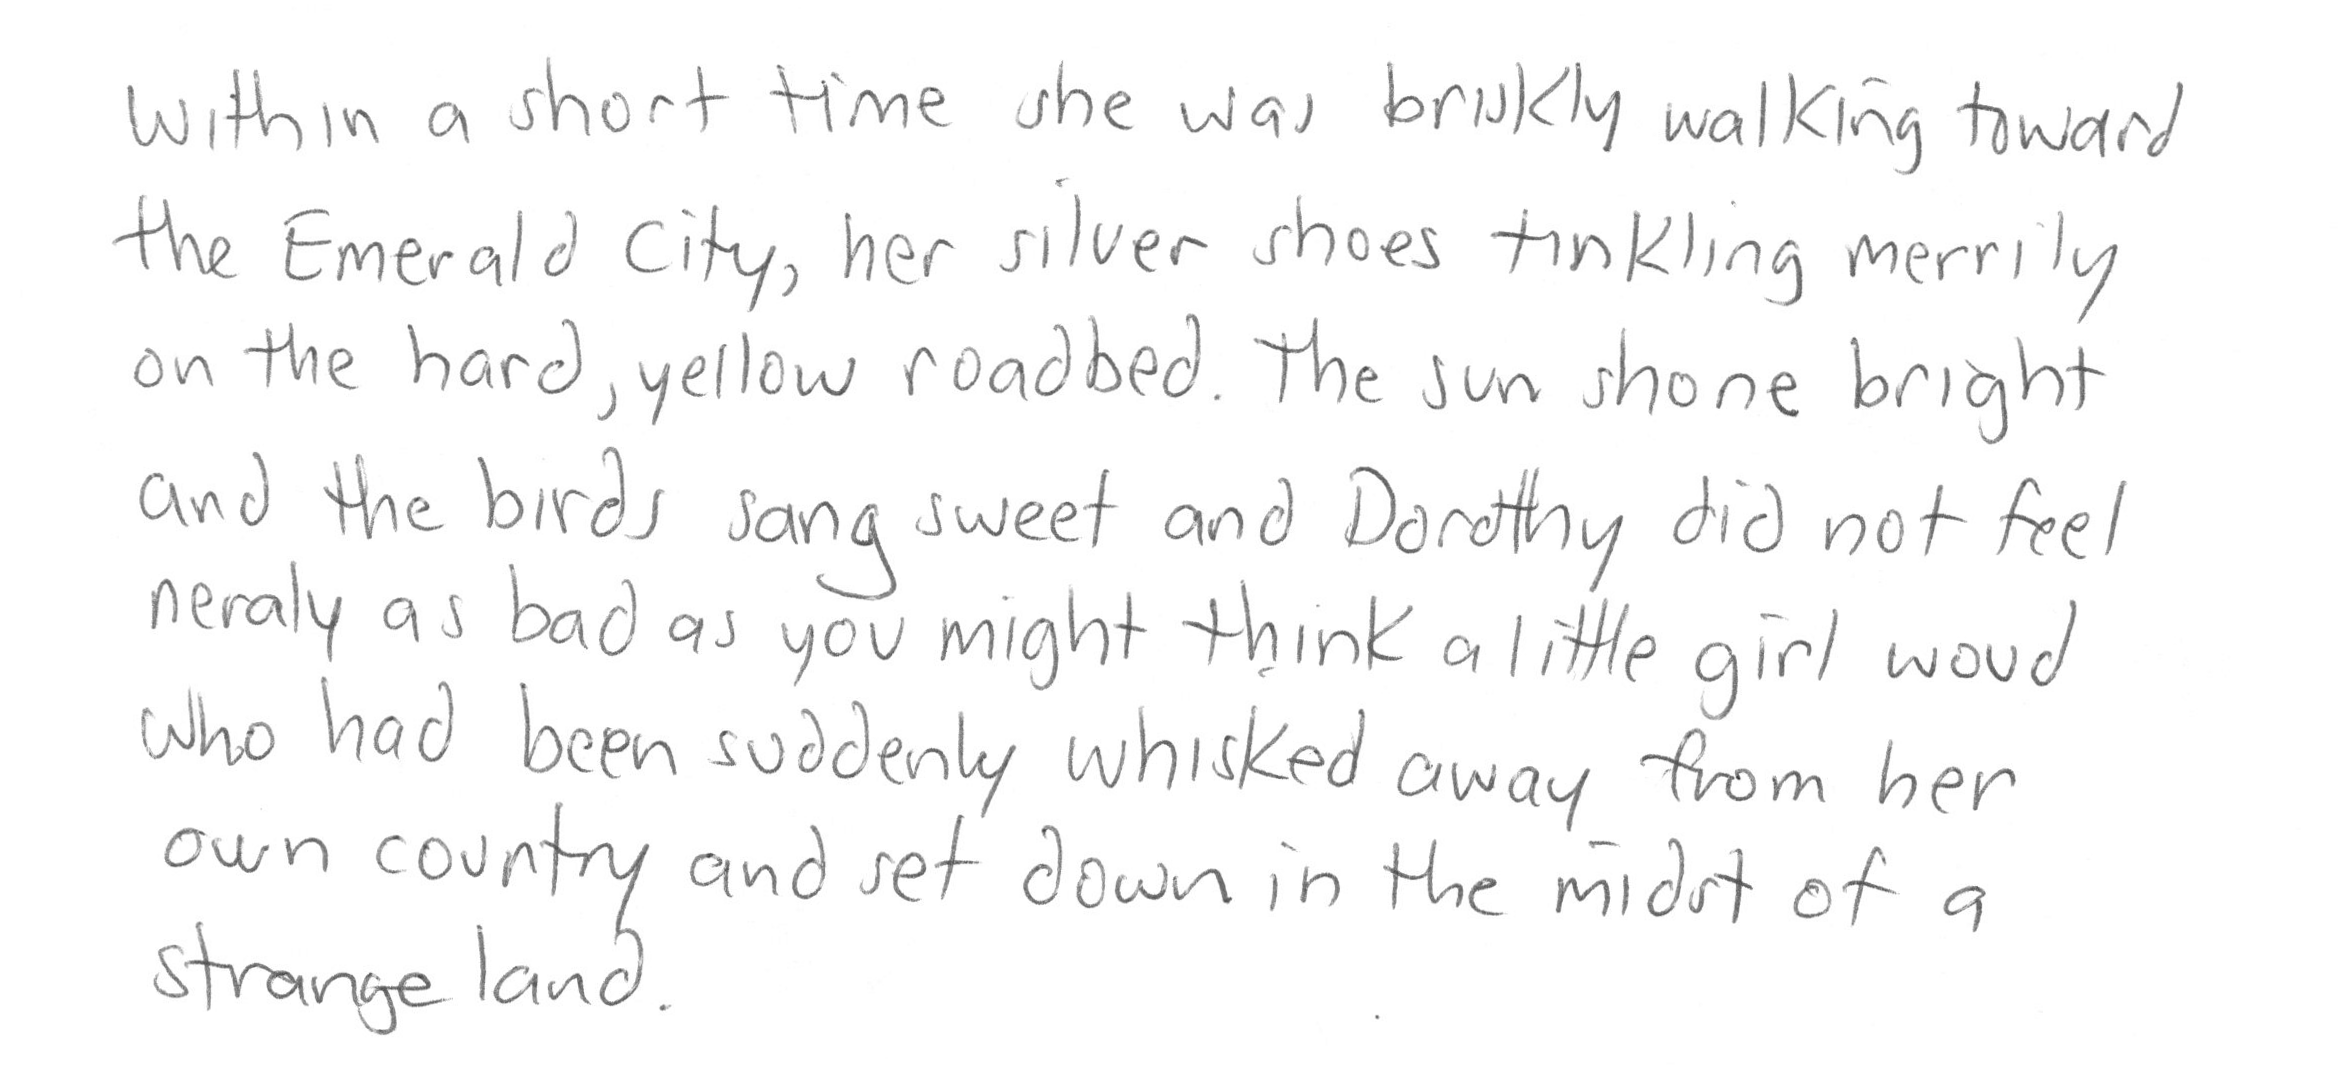 Within a short time she was briskly walking toward
the Emerald City, her silver shoes tinkling merrily
on the hard, yellow roadbed. The sun shone bright
and the birds sang sweet and Dorothy did not feel
neraly as bad as you might think a little girl woud
who had been suddenly whisked away from her
own country and set down in the midst of a
strange land.